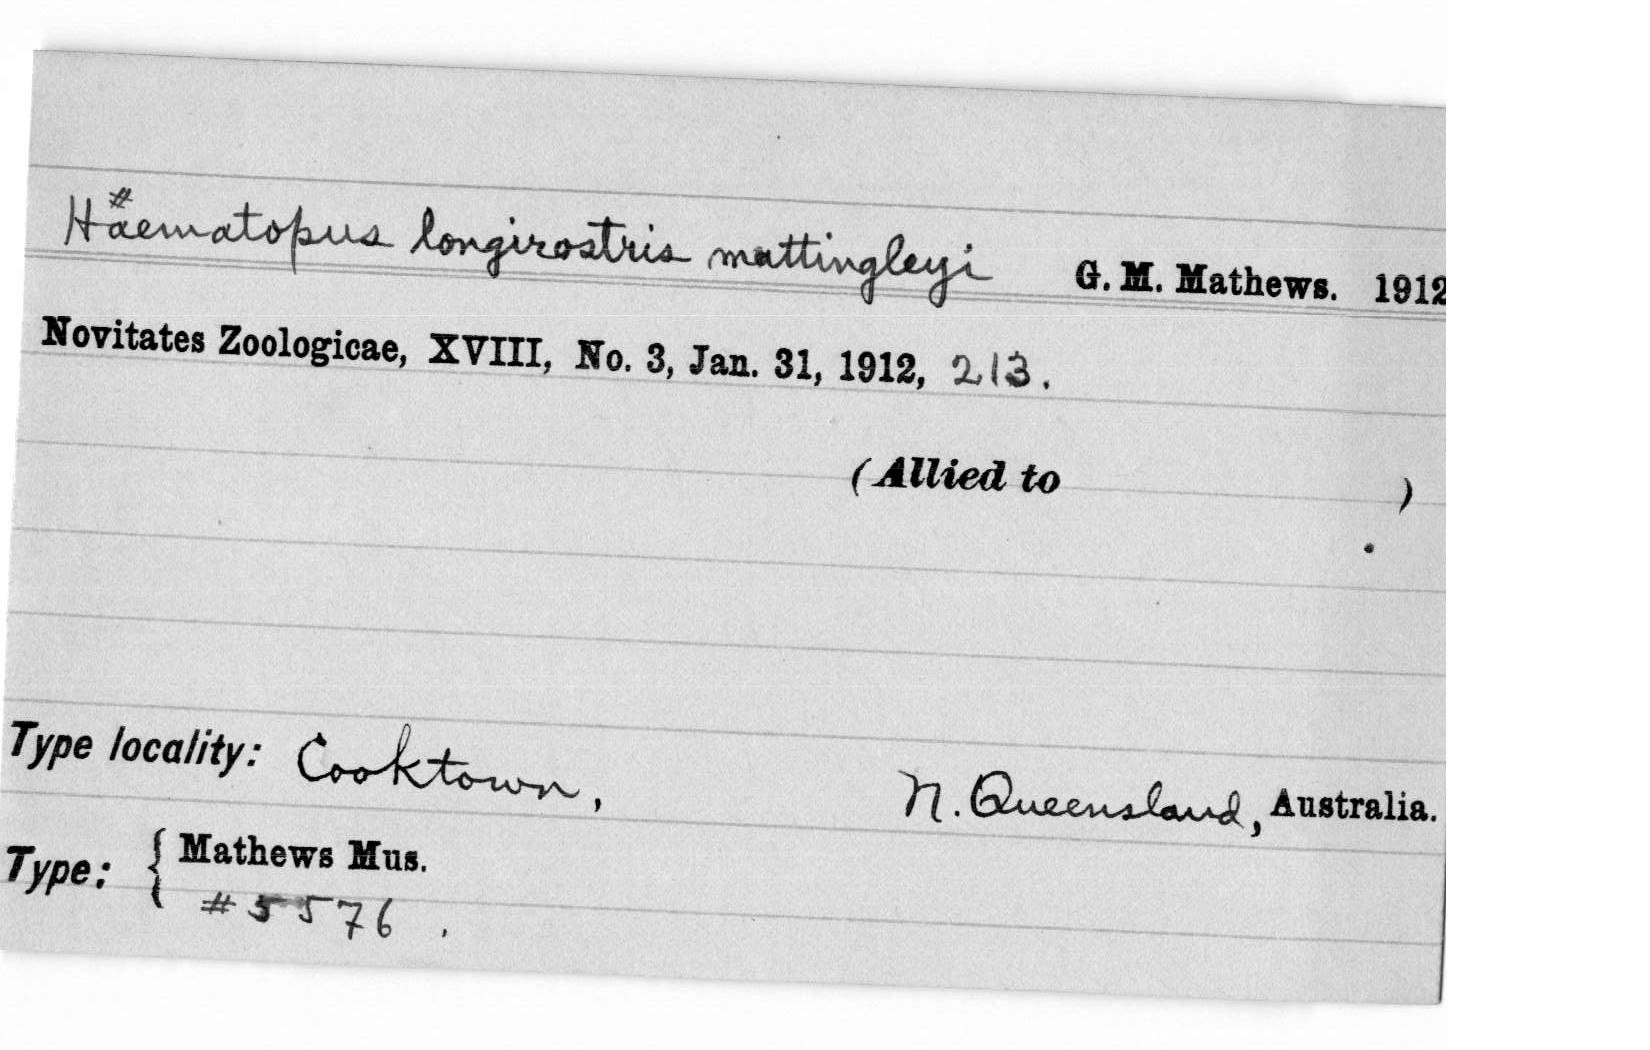 #
Haematopus longirostris mattingleyi G. M. Mathews. 1912
Novitates Zoologicae, XVIII, No. 3, Jan. 31, 1912, 213.
(Allied to )
Type locality: Cooktown, N. Queensland, Australia.
Type: { Mathews Mus.
#5576.